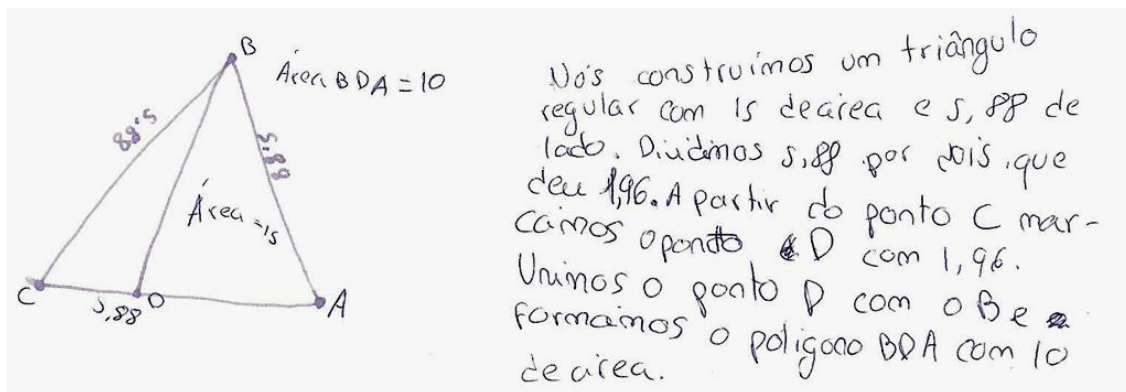 B
Área BDA = 10
5,88
5,88
Área = 15
C
D
A
5,88
Nós construímos um triângulo
regular com 15 de área e 5,88 de
lado. Dividimos 5,88 por dois, que
deu 1,96. A partir do ponto C mar-
camos o ponto D com 1,96.
Unimos o ponto D com o B e
formamos o poligono BDA com 10
de área.